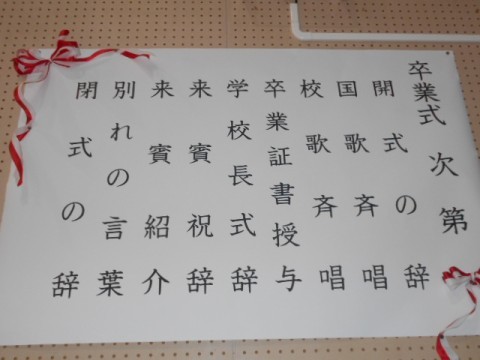 卒業式次第
開式の辞
国歌斉唱
校歌斉唱
卒業証書授与
学校長式辞
来賓祝辞
来賓紹介
別れの言葉
閉式の辞